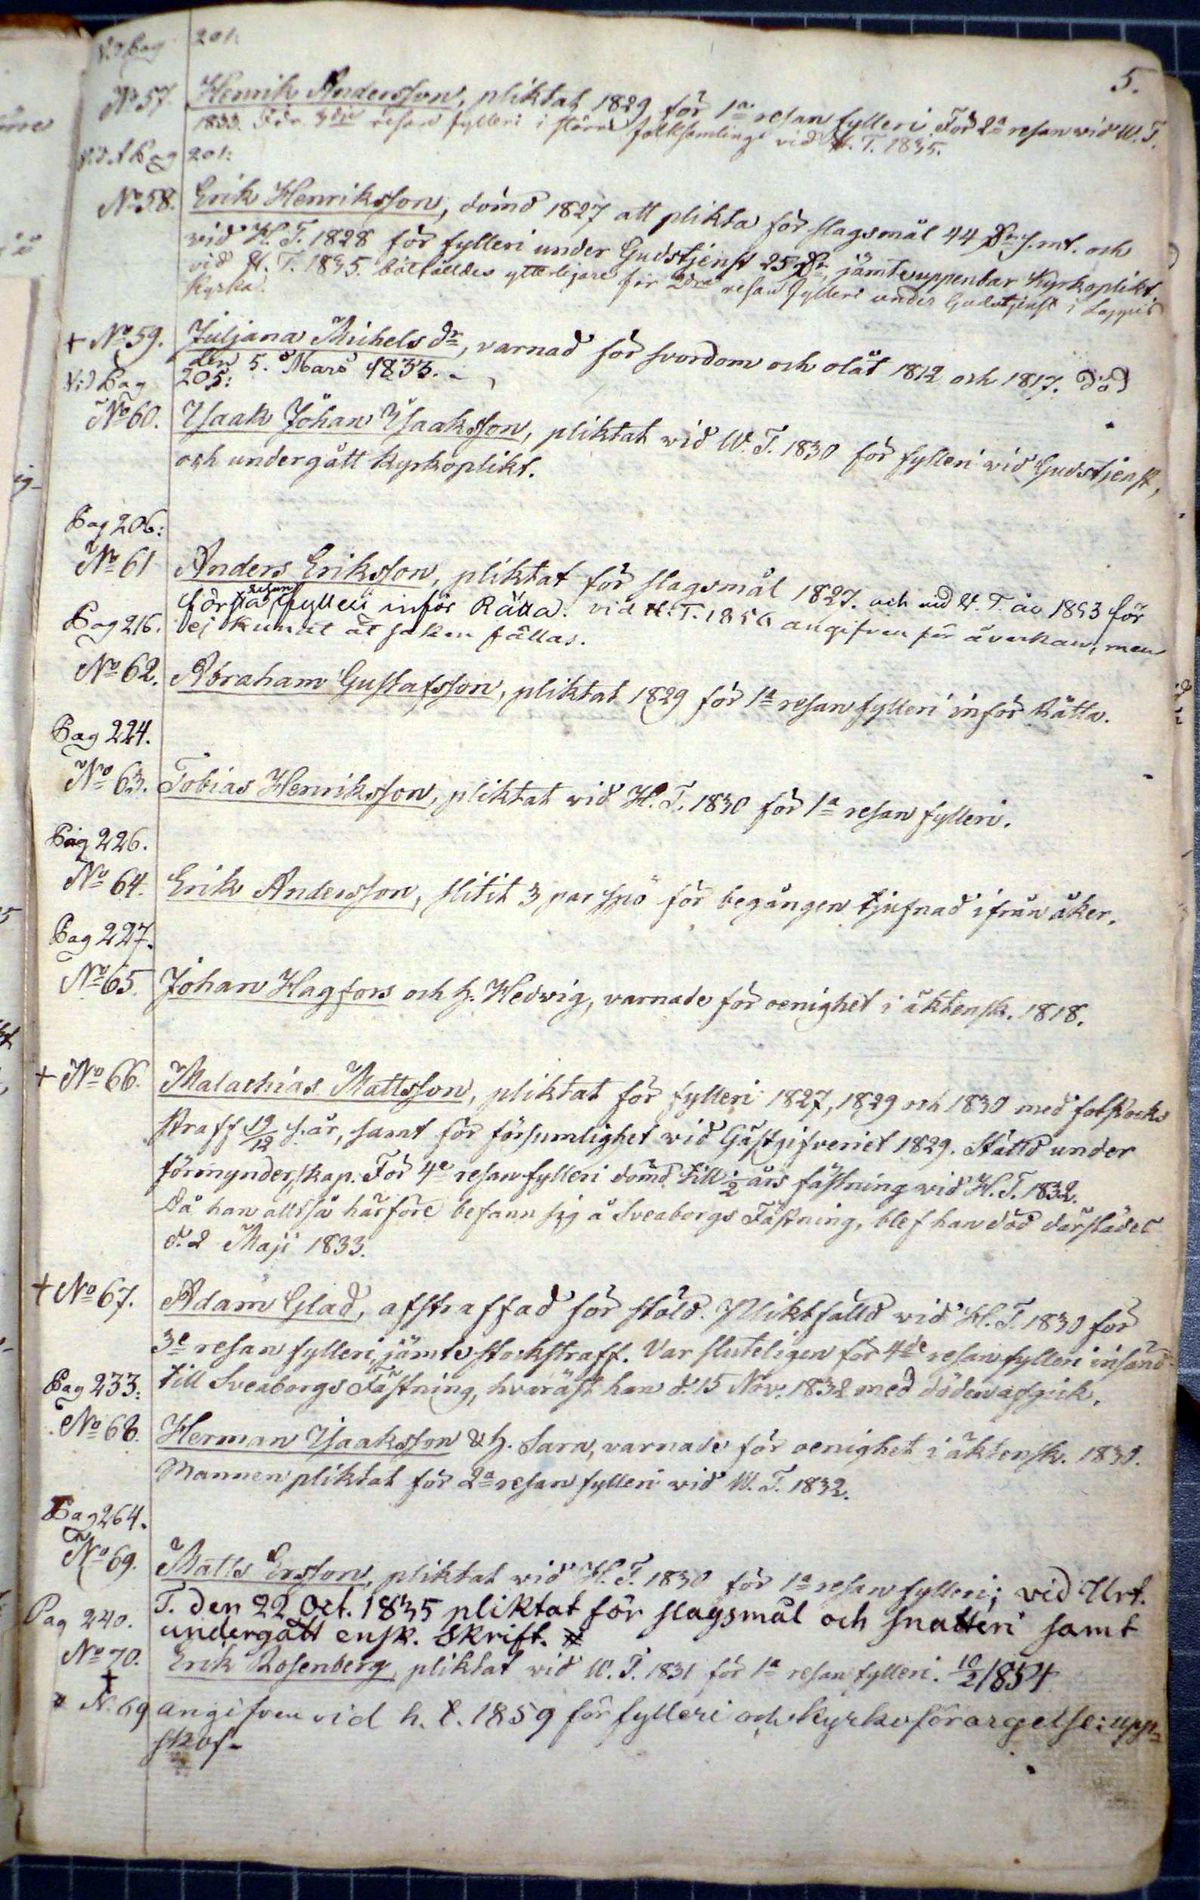 Vid Pag 201:
5.
No 57. Henrik Andersson, pliktat 1829 för 1a resan fylleri. För 2a resan vid W. T.
1833. För 3die resan fylleri i större folksamling vid H. T. 1835.
Vid A Pag 201:
No 58. Erik Henriksson, dömd 1827 att plikta för slagsmål 44 S:mt. och
vid H. T. 1828 för fylleri under Gudstjenst 25 jämte uppenbar Kyrkoplikt
vid H. T. 1835. bötfälldes ytterligare för 2dra resan fylleri under Gudstjenst i Lappvis
Kyrka.
+ No 59. Juljana Michels dr, varnad för svordom och olåt 1812 och 1817. Död
den 5. Mars 1833.
Vid Pag 205:
No 60. Isaak Johan Isaaksson, pliktat vid W. T. 1830 för fylleri vid Gudstjenst,
och undergått Kyrkoplikt.
Pag 206:
No 61 Anders Eriksson, pliktat för slagsmål 1827. och vid H. T. år 1853 för
första resan fylleri inför Rätta. vid H. T. 1856 angifven för åverkan, men
Pag 216. ej kunnat åt saken fällas.
No 62. Abraham Gustafsson, pliktat 1829 för 1a resan fylleri inför Rätta.
Pag 224.
No 63. Tobias Henriksson, pliktat vid H. T. 1830 för 1a resan fylleri.
Pag 226.
No 64. Erik Andersson, slitit 3 par spö för begången tjufnad ifrån åker.
Pag 227.
No 65. Johan Hagfors och h. Hedvig, varnade för oenighet i äktensk. 1818.
+ No 66. Malachias Mattsson, pliktat för fylleri 1827, 1829 och 1830 med fotstocks
straff 19/12 s.år, samt för försumlighet vid Gästgifveriet 1829. Ställd under
förmynderskap. För 4e resan fylleri dömd till 1/2 års fästning vid H. T. 1832.
Då han alltså härföre befann sig å Sveaborgs Fästning, blef han död därstädes
d. 2 Maji 1833.
+ No 67. Adam Glad, afstraffad för stöld. Pliktfälld vid H. T. 1830 för
3e resan fylleri, jämte stockstraff. Var sluteligen för 4de resan fylleri insänd
Pag 233: till Sveaborgs Fästning, hvaräst han d. 15 Nov. 1832 med döden afgick.
No 68. Herman Isaaksson & h. Sara, varnade för oenighet i äktensk. 1830.
Mannen pliktat för 2a resan fylleri vid W. T. 1832.
Pag 264.
No 69. Matts Ersson, pliktat vid H. T. 1830 för 1a resan fylleri; vid Urt.
T. den 22 Oct. 1835 pliktat för slagsmål och snatteri samt
Pag 240. undergått ensk. Skrift. #
No 70. Erik Rosenberg, pliktat vid W. T. 1831 för 1a resan fylleri. 10/2 1854
+
# N. 69 angifven vid h. t. 1859 för fylleri och Kyrkoförargelse: upp-
skof-